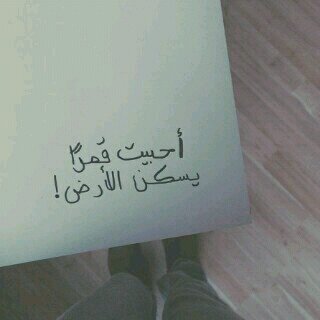 أحببت قمرًا
يسكن الأرض!